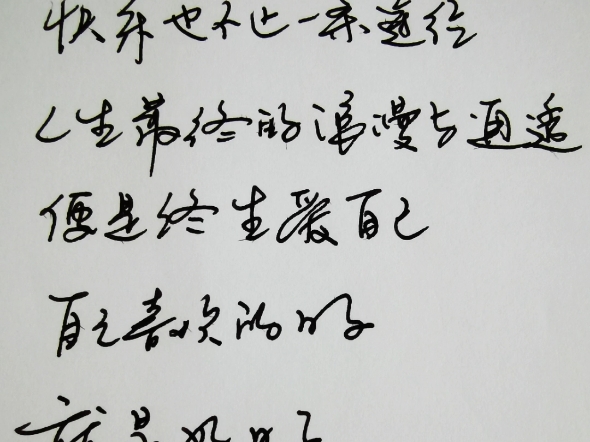 快乐也不止一条途径
人生最终的浪漫与通透
便是终生爱自己
自己喜欢的时
就是好时